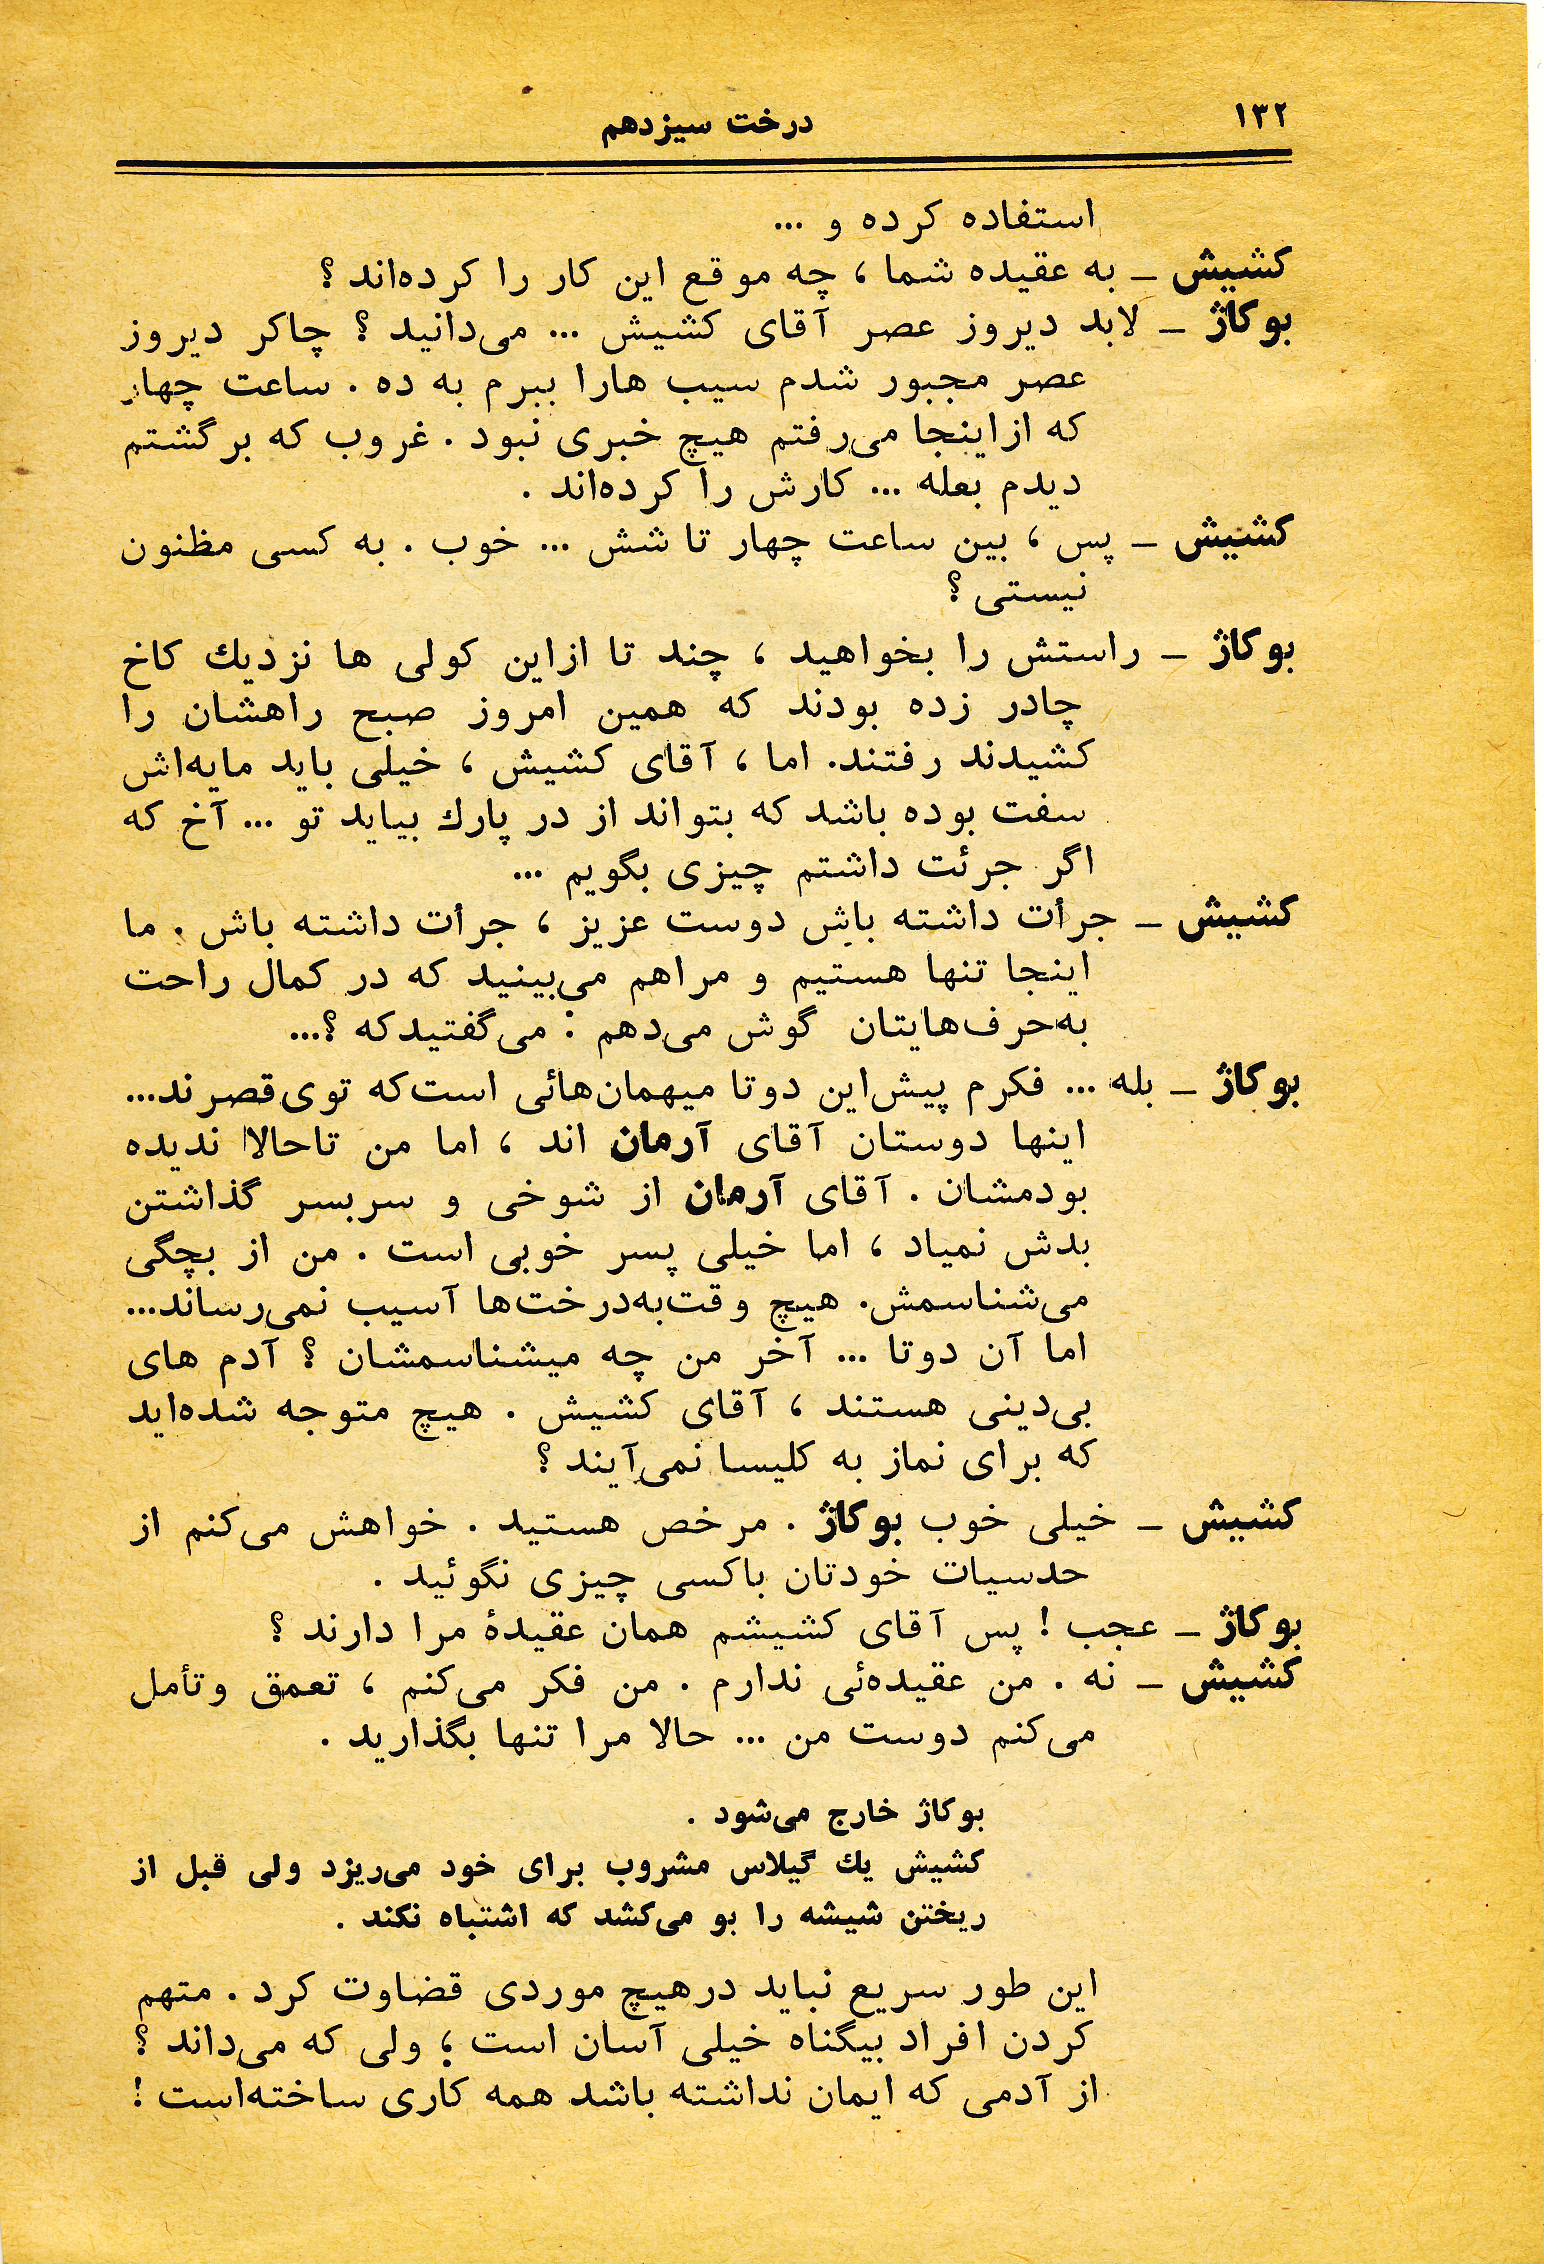 ۱۳۲
درخت سیزدهم
استفاده کرده و ...
کشیش – به عقیده شما ، چه موقع این کار را کرده‌اند ؟
بوکاژ – لابد دیروز عصر آقای کشیش ... می‌دانید ؟ چاکر دیروز
عصر مجبور شدم سیب هارا ببرم به ده . ساعت چهار
که ازاینجا می‌رفتم هیچ خبری نبود . غروب که برگشتم
دیدم بعله ... کارش را کرده‌اند .
کشیش – پس ، بین ساعت چهار تا شش ... خوب . به کسی مظنون
نیستی ؟
بوکاژ – راستش را بخواهید ، چند تا ازاین کولی ها نزدیك کاخ
چادر زده بودند که همین امروز صبح راهشان را
کشیدند رفتند. اما ، آقای کشیش ، خیلی باید مایه‌اش
سفت بوده باشد که بتواند از در پارك بیاید تو ... آخ که
اگر جرئت داشتم چیزی بگویم ...
کشیش – جرأت داشته باش دوست عزیز ، جرأت داشته باش . ما
اینجا تنها هستیم و مراهم می‌بینید که در کمال راحت
به‌حرف‌هایتان گوش می‌دهم : می‌گفتیدکه ؟...
بوکاژ – بله ... فکرم پیش‌این دوتا میهمان‌هائی است‌که توی‌قصرند...
اینها دوستان آقای آرمان اند ، اما من تاحالا ندیده
بودمشان . آقای آرمان از شوخی و سربسر گذاشتن
بدش نمیاد ، اما خیلی پسر خوبی است . من از بچگی
می‌شناسمش. هیچ وقت‌به‌درخت‌ها آسیب نمی‌رساند...
اما آن دوتا ... آخر من چه میشناسمشان ؟ آدم های
بی‌دینی هستند ، آقای کشیش . هیچ متوجه شده‌اید
که برای نماز به کلیسا نمی‌آیند ؟
کشیش – خیلی خوب بوکاژ . مرخص هستید . خواهش می‌کنم از
حدسیات خودتان باکسی چیزی نگوئید .
بوکاژ – عجب ! پس آقای کشیشم همان عقیدۀ مرا دارند ؟
کشیش – نه . من عقیده‌ئی ندارم . من فکر می‌کنم ، تعمق وتأمل
می‌کنم دوست من ... حالا مرا تنها بگذارید .
بوکاژ خارج می‌شود .
کشیش یك گیلاس مشروب برای خود می‌ریزد ولی قبل از
ریختن شیشه را بو می‌کشد که اشتباه نکند .
این طور سریع نباید درهیچ موردی قضاوت کرد . متهم
کردن افراد بیگناه خیلی آسان است ؛ ولی که می‌داند ؟
از آدمی که ایمان نداشته باشد همه کاری ساخته‌است !